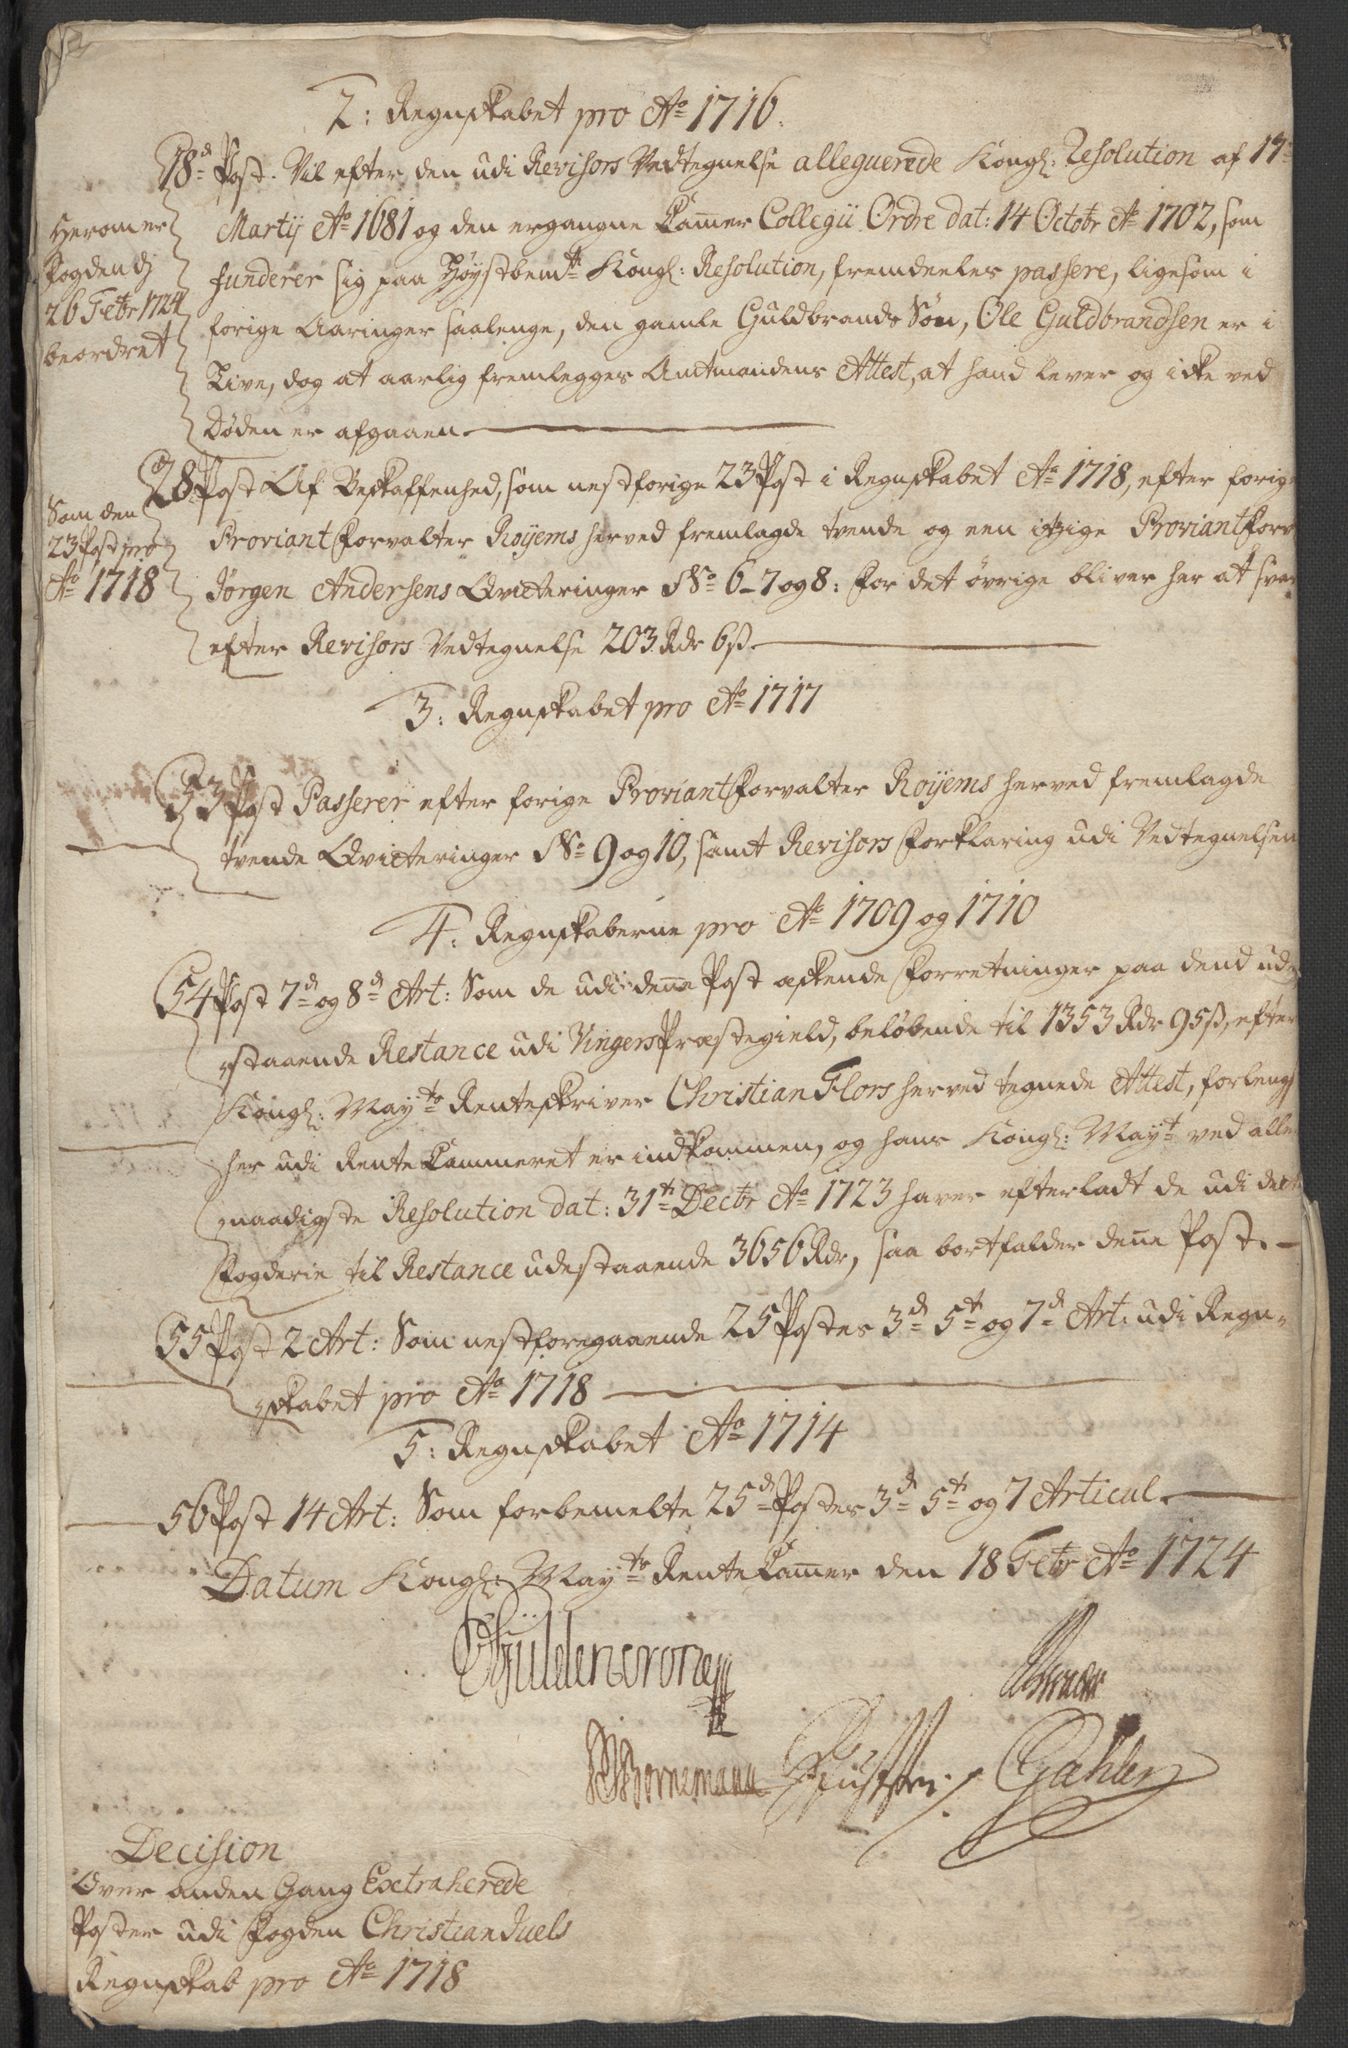 2: Regnskabet pro Ao 1716.
18d Post. Vil efter den udi Revisors Vedtegnelse alleguerede Kongl: Resolution af 17
Martij Ao 1681 og den ergangne Cam̄er Collegii Ordre dat: 14 Octobr Ao 1702, som
funderer sig paa Høystbemte Kongl: Resolution, fremdeeles passere, ligesom i
forige Aaringer saalenge, den gamle Guldbrands Søn, Ole Guldbrandsen er i
Live, dog at aarlig fremlegges Amtmandens Attest, at hand lever og icke ved
Døden er afgaaen.
Herom er
Fogden dj
26 Febr 1724
beordret
28 Post Af Beskaffenhed, som nestforige 23 Post i Regnskabet Ao 1718, efter forig
Proviant Forvalter Røyems herved fremlagde tvende og een itzige Proviant Forv
Jørgen Andersens Qvicteringer No 6_7 og 8: for det øvrige bliver her at svar
efter Revisors Vedtegnelse 203 Rdr 6ß.
Som den
23 Post pro
Ao 1718
3: Regnskabet pro Ao 1717
53 Post Passerer efter forige Proviant Forvalter Røyems herved fremlagde
tvende Qvicteringer No 9 og 10, samt Revisors Forklaring udi Vedtegnelsen
4: Regnskaberne pro Ao 1709 og 1710
54 Post 7d og 8d Art: Som de udi den̄e Post askende Forretninger paa dend ude
staaende Restance udi Vingers Præstegield, beløbende til 1353 Rdr 95ß, efter
Kongl: Mayts Renteskriver Christian Flors herved tegnede Attest, forleng
her udi Rente Kammeret er indkommen, og hans Kongl: Mayt ved aller
naadigste Resolution dat: 31te Decbr Ao 1723 haver efterladt de udi dett
Fogderie til Restance udestaaende 3656 Rdr, saa bortfalder den̄e Post.
55 Post 2 Art: Som nestforegaaende 25 Postes 3d 5t og 7d Art: udi Regn-
skabet pro Ao 1718
5: Regnskabet Ao 1714
56 Post 14 Art: Som forbemelte 25d Postes 3d 5t og 7 Articul.
Datum Kongl: Mayts Rente Cam̄er den 18 Febr Ao 1724
Güldencrone
Bornemann Gahler
Decision
Over anden Gang Extraherede
Poster udi Fogden Christian Juels
Regnskab pro Ao 1718